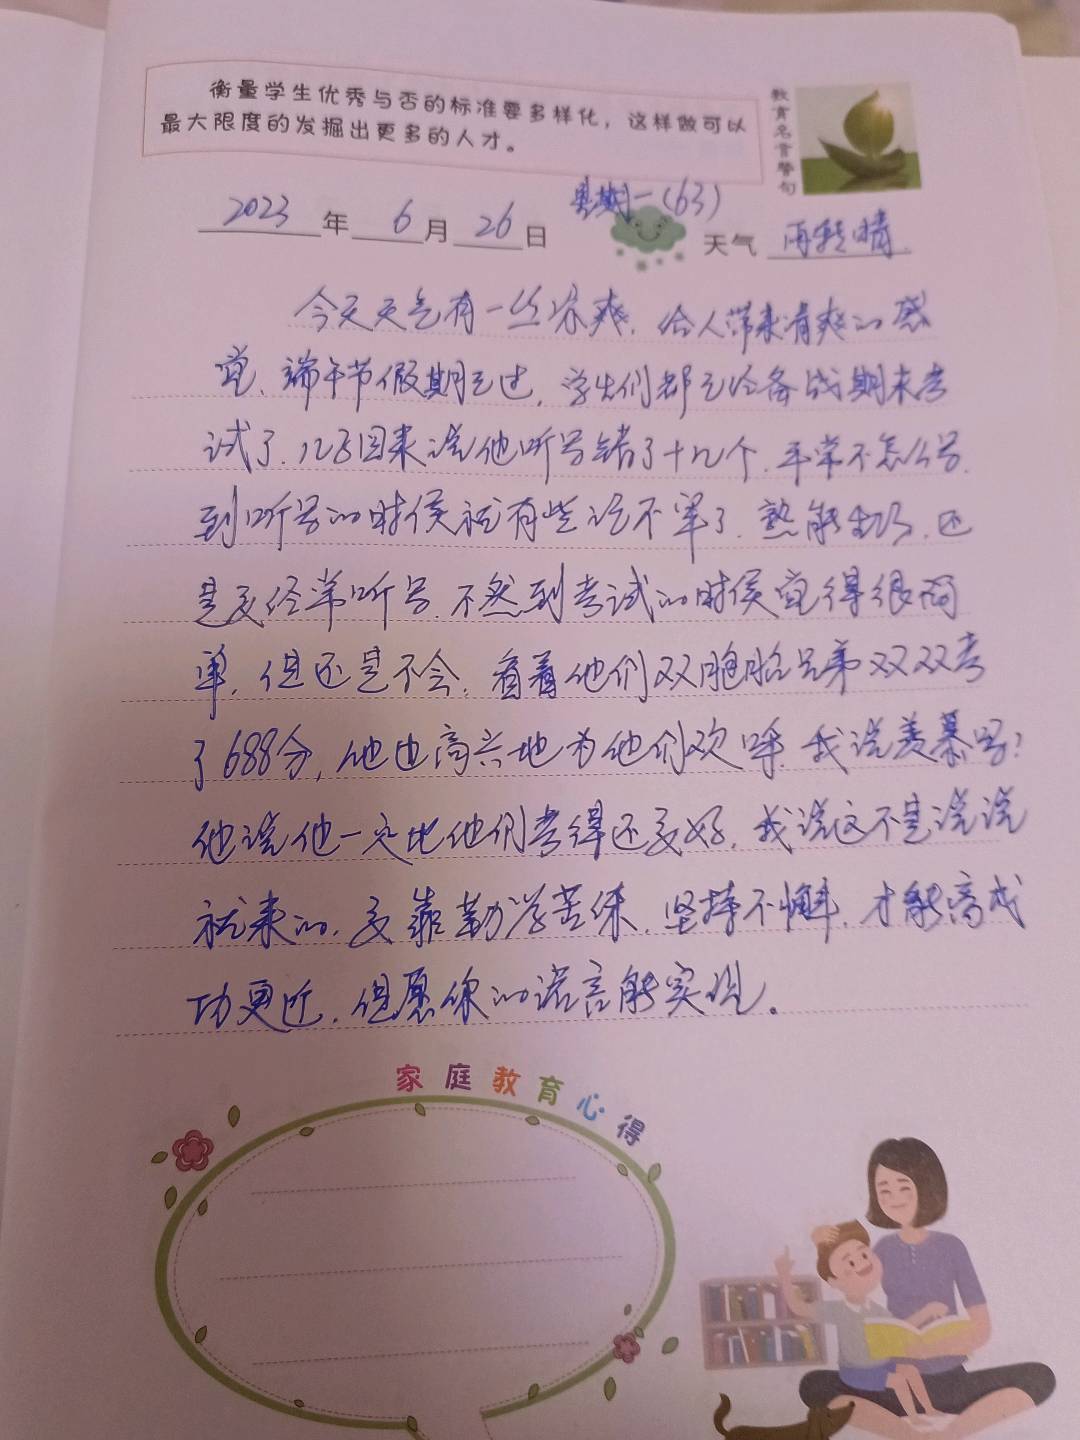 衡量学生优秀与否的标准要多样化，这样做可以
最大限度的发掘出更多的人才。
教育名言警句
星期一(63)
2023年6月26日 天气 雨转晴
今天天气有一丝凉爽，给人带来清爽的感
觉，端午节假期已过，学生们都已经备战期末考
试了，儿子回来说他听写错了十几个，平常不怎么写，
到听写的时候就有些记不牢了，熟能生巧，还
是要经常听写，不然到考试的时候觉得很简
单，但还是不会，看着他们双胞胎兄弟双双考
了688分，他也高兴地为他们欢呼，我说羡慕吗？
他说他一定比他们考得还要好，我说这不是说说
就来的，要靠勤学苦练，坚持不懈，才能离成
功更近，但愿你的诺言能实现。
家庭教育心得